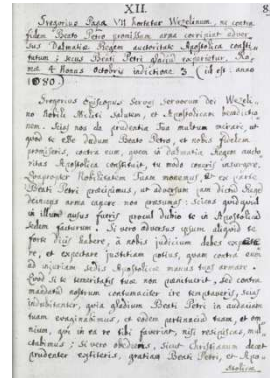 XII.
8
Gregorius Papa VII hortatur Wezelinum, ne contra
fidem Beato Petro promissam arma corripiat adver
sus Dalmatiæ Regem auctoritate Apostolica consti
tutum; secus Beati Petri gladium experietur. Ro
mæ 4 Nonas Octobris indictione 3 (id est anno
1080.)
Gregorius Episcopus Servus servorum Dei Wezeli
no Nobili Militi Salutem, et Apostolicam benedictio
nem. Scias nos de prudentia tua multum mirari, ut
quod te esse dudum Beato Petro, et nobis fidelem
promiseris, contra eum, quem in Dalmatia Regem aucto
ritas Apostolica constituit, tu modo coneris insurgere.
Quapropter Nobilitatem tuam monemus, et ex parte
Beati Petri præcipimus, ut adversum jam dictum Regem
deinceps arma capere non præsumas: sciens quidquid
in illum ausus fueris procul dubio te in Apostolicam
sedem facturum. Si vero adversus ipsum aliquid te
forte dicis habere, a nobis judicium debes expete
re, et expectare justitiam potius, quam contra eum
ad injuriam Sedis Apostolicæ manus tuas armare.
Quod si te temeritatis tuæ non pœnituerit, sed contra
mandatum nostrum contumaciter ire tentaveris, scias
indubitanter, quia gladium Beati Petri in audaciam
tuam evaginabimus, et eodem pertinaciam tuam, et om
nium, qui in ea re tibi faverint, nisi resipiscas, mul
ctabimus; Si vero obediens, sicut Christianum decet
prudenter extiteris, gratiam Beati Petri, et Apo
stolicæ